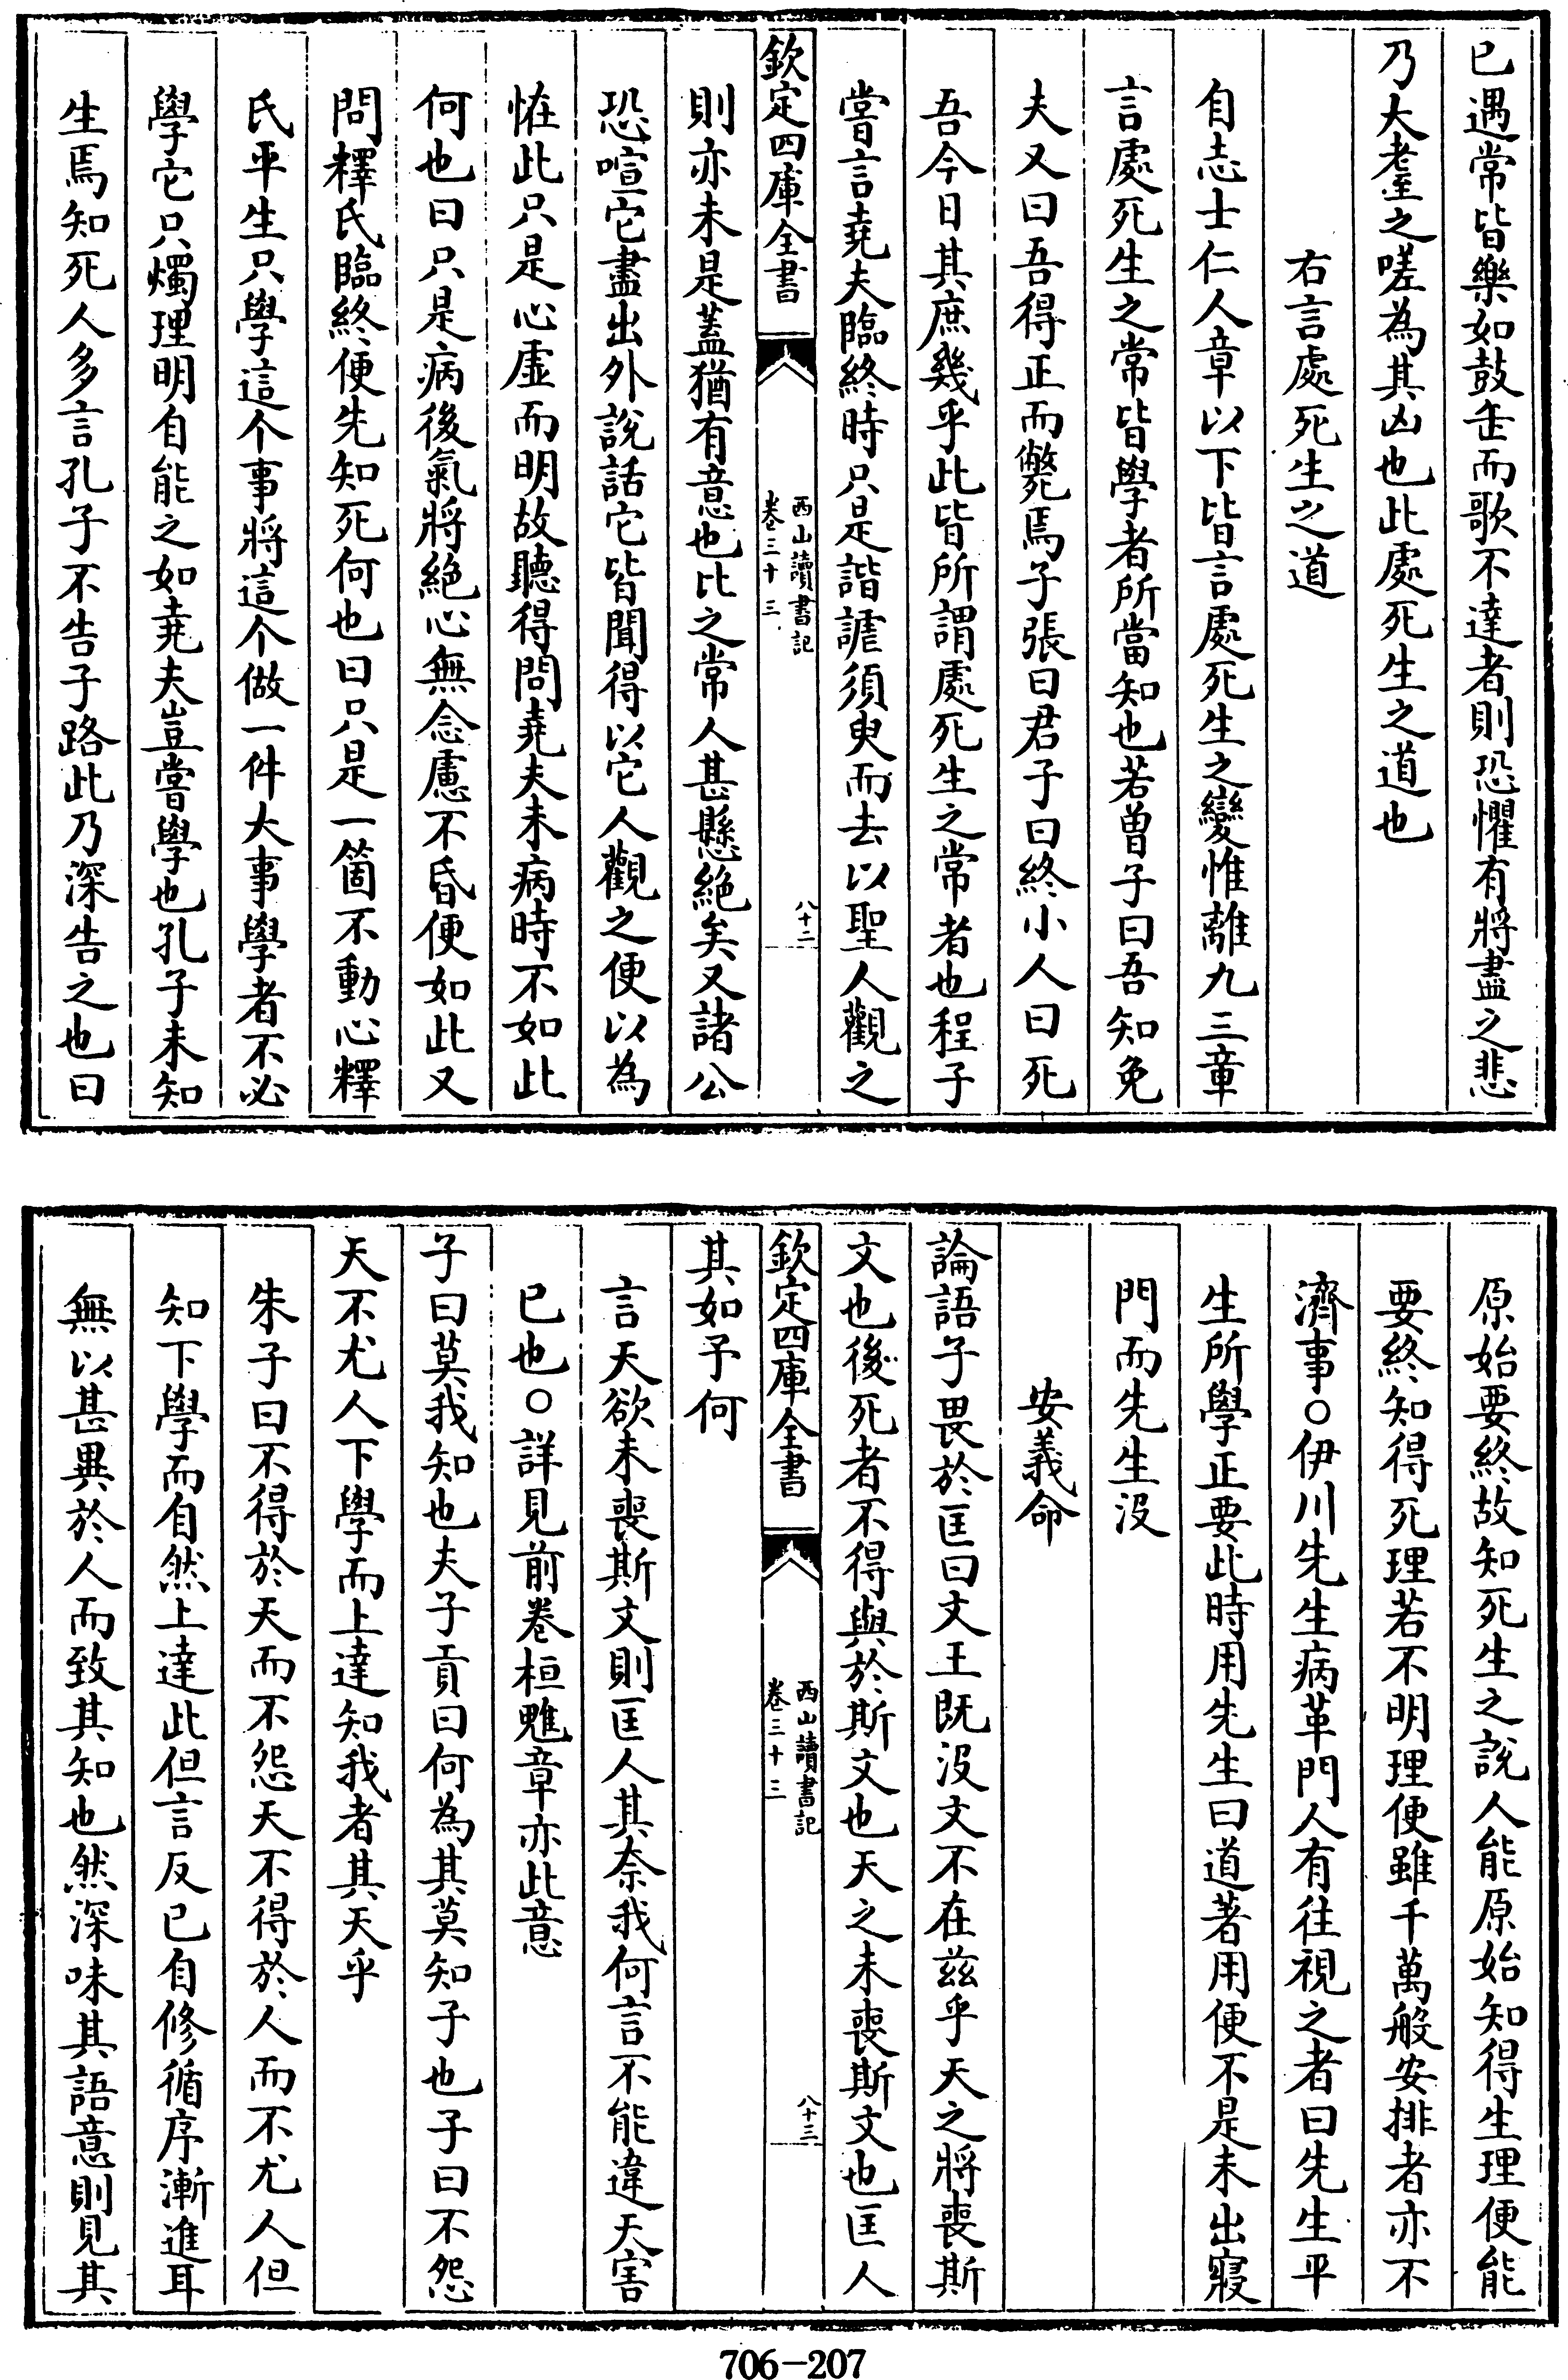 已遇常皆樂如鼓缶而歌不達者則恐懼有將盡之悲
乃大耋之嗟為其凶也此處死生之道也
右言處死生之道
自志士仁人章以下皆言處死生之變惟離九三章
言處死生之常皆學者所當知也若曽子曰吾知免
夫又曰吾得正而斃焉子張曰君子曰終小人曰死
吾今日其庶幾乎此皆所謂處死生之常者也程子
嘗言堯夫臨終時只是諧謔須臾而去以聖人觀之
欽定四庫全書
西山讀書記
卷三十三
八十二
則亦未是蓋猶有意也比之常人甚懸絶矣又諸公
恐喧它盡出外說話它皆聞得以它人觀之便以為
恠此只是心虛而明故聽得問堯夫未病時不如此
何也曰只是病後氣將絶心無念慮不昏便如此又
問釋氏臨終便先知死何也曰只是一箇不動心釋
氏平生只學這个事將這个做一件大事學者不必
學它只燭理明自能之如堯夫豈嘗學也孔子未知
生焉知死人多言孔子不告子路此乃深告之也曰
原始要終故知死生之說人能原始知得生理便能
要終知得死理若不明理便雖千萬般安排者亦不
濟事○伊川先生病革門人有往視之者曰先生平
生所學正要此時用先生曰道著用便不是未出寢
門而先生没
安義命
論語子畏於匡曰文王既没文不在茲乎天之將喪斯
文也後死者不得與於斯文也天之未喪斯文也匡人
欽定四庫全書
西山讀書記
卷三十三
八十三
其如予何
言天欲未喪斯文則匡人其奈我何言不能違天害
已也○詳見前卷桓魋章亦此意
子曰莫我知也夫子貢曰何為其莫知子也子曰不怨
天不尤人下學而上達知我者其天乎
朱子曰不得於天而不怨天不得於人而不尤人但
知下學而自然上達此但言反已自修循序漸進耳
無以甚異於人而致其知也然深味其語意則見其
706-207